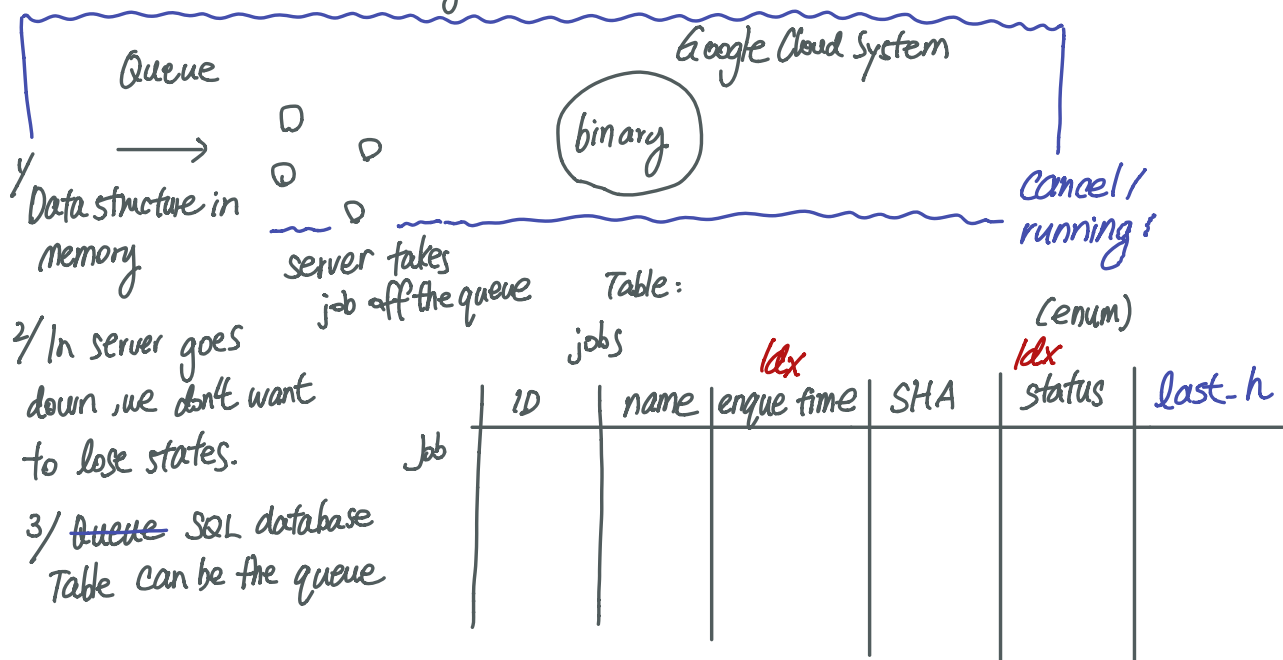 Queue
Google Cloud System
binary
1/
Data structure in
memory
server takes
job off the queue
cancel/
running:
2/ In server goes
down, we don't want
to lose states.
3/ Queue SQL database
Table can be the queue
Table:
jobs
(enum)
Idx
Idx
ID
name
enque time
SHA
status
last_h
Job